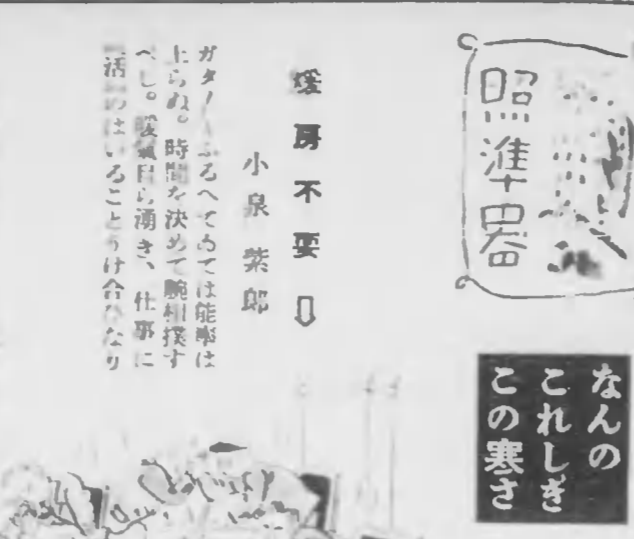 照準器
なんの
これしき
この寒さ
煖房不要⇩
小泉紫郎
ガタ〳〵ふるへてゐては能率は
上らぬ。時間を決めて腕相撲す
べし。暖氣自ら湧き、仕事に
活 のはいることうけ合ひなり